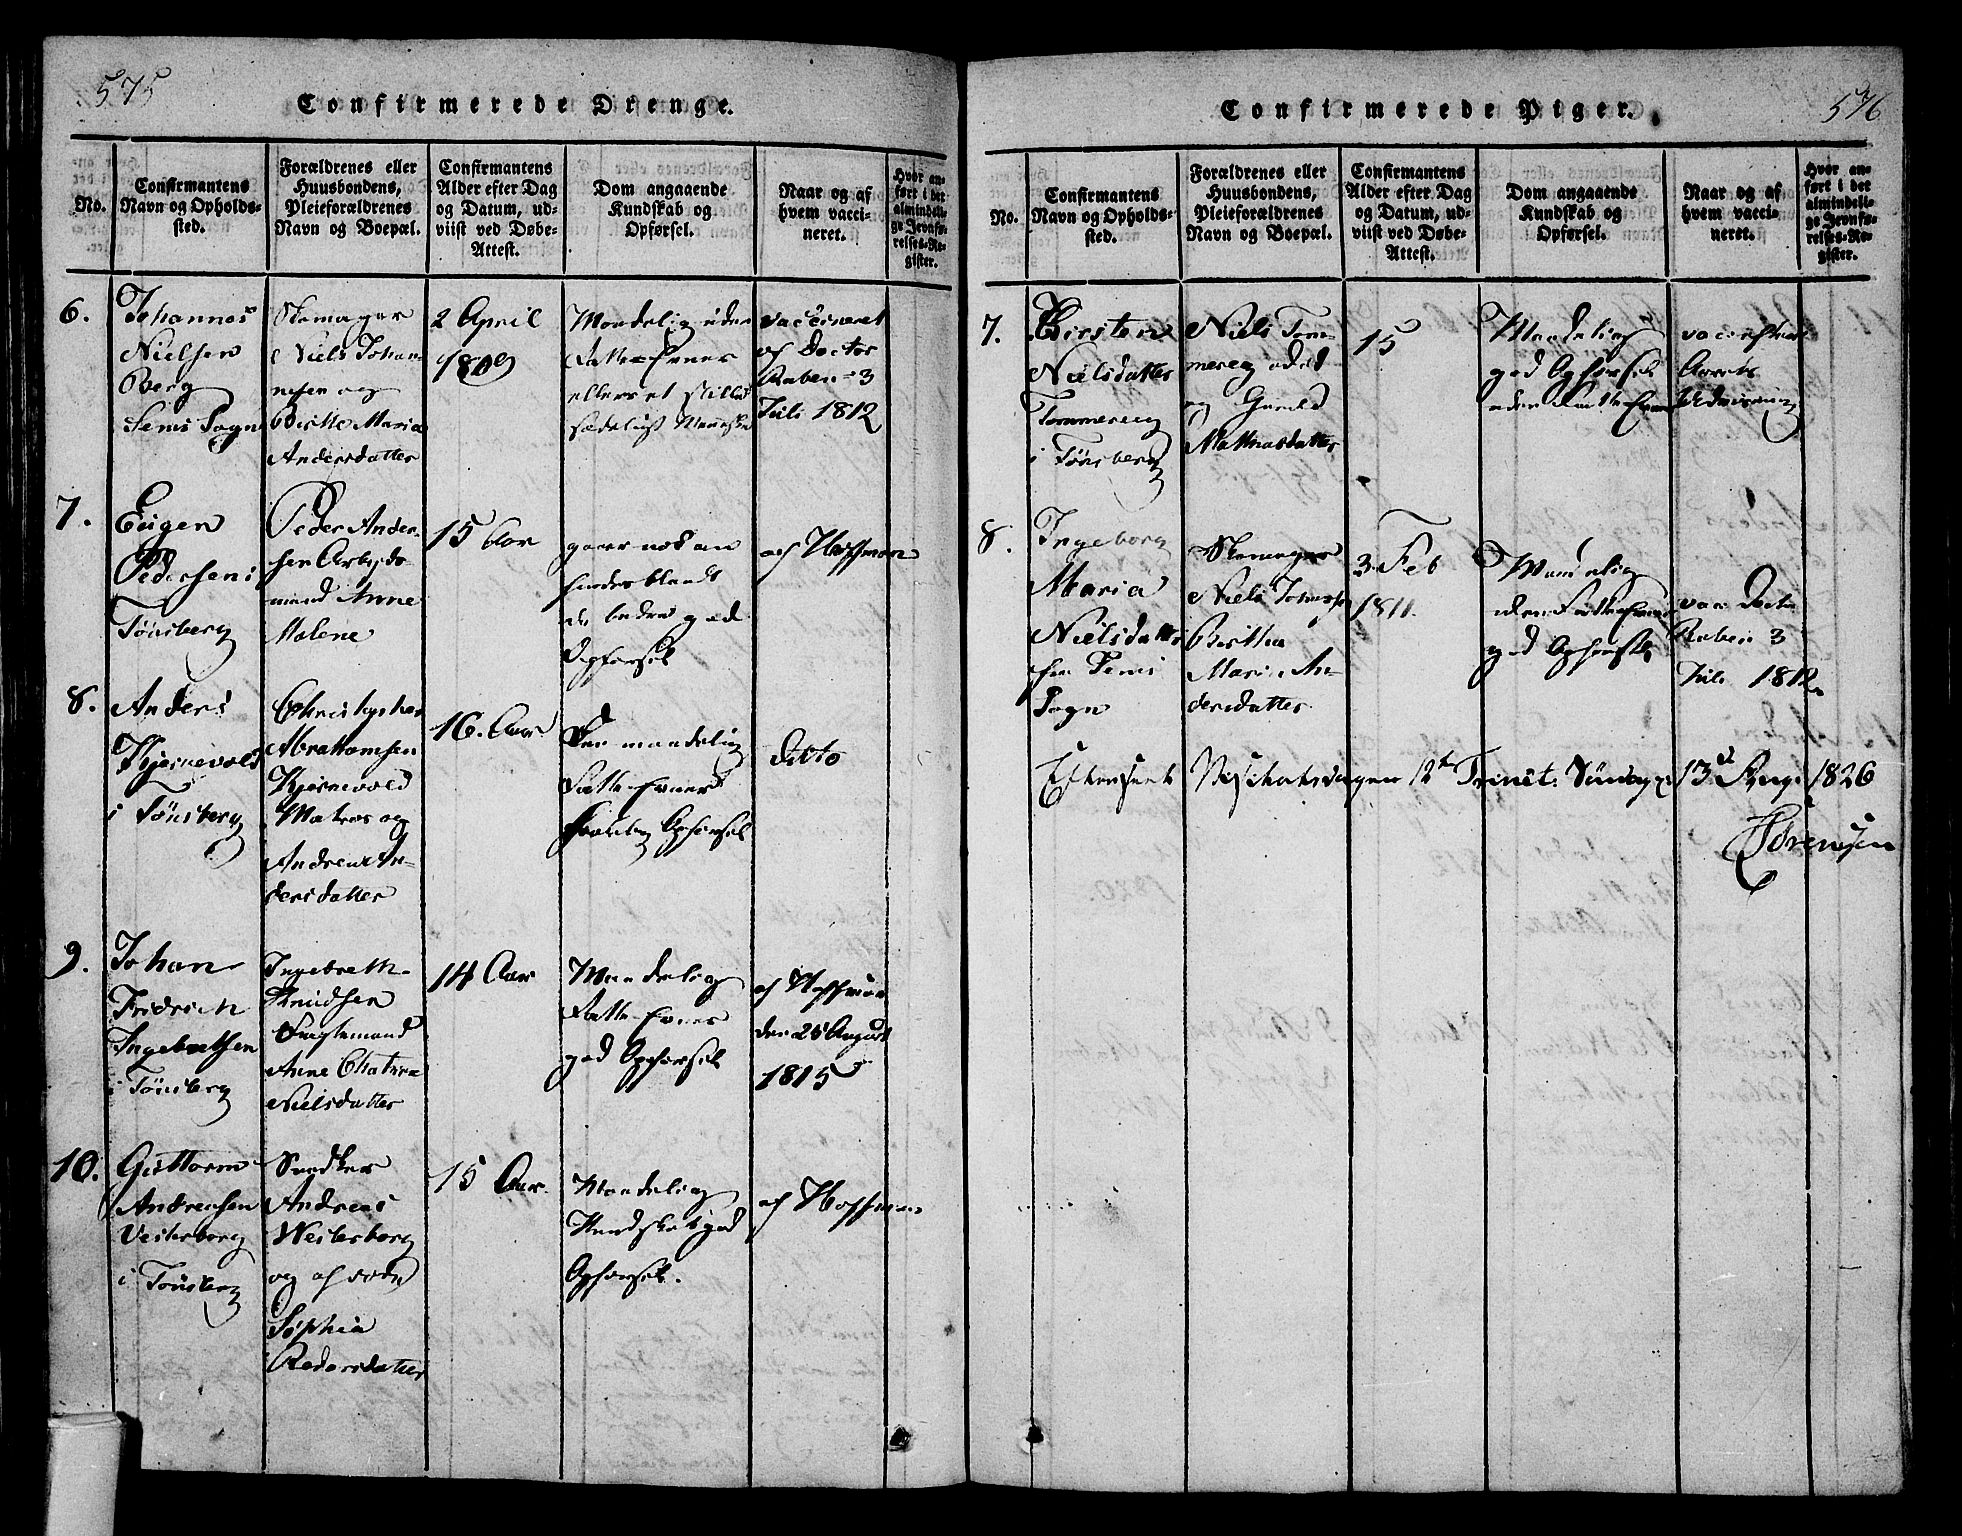 575
Confirmerede Drenge.
No.
Confirmantens
Navn og Opholds-
sted.
Forældrenes eller
Huusbondens,
Pleieforældrenes
Navn og Boepæl.
Confirmantens
Alder efter Dag
og Datum, ud-
viist ved Døbe-
Attest.
Dom angaaende
Kundskab og
Opførsel.
Naar og af
hvem vacci-
neret.
Hvor an-
ført i det
almindeli-
ge Jevnfø-
relses-Re-
gister.
6.
Johannes
Nielsen
Berg
Sems Sogn
Skomager
Niels Johan-
nesen og
Birthe Maria
Andersdatter
2 April
1809
Maadelig uden
Fatte-Evner
ellers et stille
sædeligt Menneske
vaccineret
af Doctor
Raben 3
Juli 1812
7.
Pedersen i
Tönsberg
Peder Ander-
sen Arbejds-
mand Anne
Malene
15 Aar
bedre god
Opførsel
af Hoffman
8.
Anders
Kjernevold
i Tönsberg
Christopher
Abrahamsen
Kjernevold
Matros og
Andrea An-
dersdatter
16. Aar
maadelig
Fatte-Evner
Opførsel
ditto
9.
Johan
Fridrich
Ingebretsen
i Tönsberg
Ingebreth
Knudsen
Anne Chatrina
Nielsdatter
14 Aar
Maadelig
Fatte-Evner
god Opførsel
af Hoffman
den 25 August
1815
10.
Guttorm
Andreasen
Vesterborg
i Tönsberg
Snedker
Andreas
Westerborg
og
Sophia
Redersdatter
15 Aar.
Maadelig
Kundskab god
Opførsel.
af Hoffman
576
Confirmerede Piger.
No.
Confirmantens
Navn og Opholds-
sted.
Forældrenes eller
Huusbondens,
Pleieforældrenes
Navn og Boepæl.
Confirmantens
Alder efter Dag
og Datum, ud-
viist ved Døbe-
Attest.
Dom angaaende
Kundskab og
Opførsel.
Naar og af
hvem vacci-
neret.
Hvor an-
ført i det
almindeli-
ge Jevnfø-
relses-Re-
gister.
7.
Kirsten
Nielsdatter
Tommereeg
i Tönsberg
Niels Tom-
mereeg
og
Mathiasdatter
15
Maadelig
god Opførsel
uden Fatte Evne
8.
Ingeborg
Maria
Nielsdatter
fra Sems
Sogn
Skomager
Niels
Birthe
Maria An-
dersdatter
3 Feb
1811.
Maadelig
uden Fatte Evne
god Opførsel
vac. Doctor
Raben 3
Juli 1812
Visitatsdagen 12te Trinit. Söndag 13d Aug. 1826
Sörensen